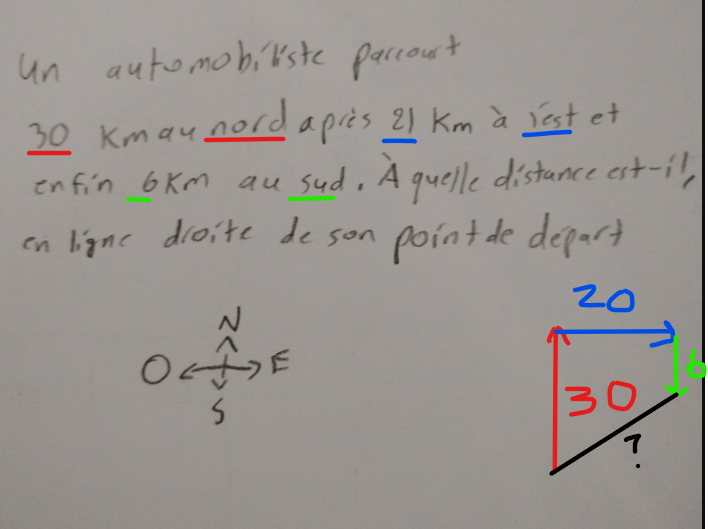 Un automobiliste parcourt
30 Km au nord après 21 Km à l'est et
enfin 6 Km au sud. À quelle distance est-il,
en ligne droite de son point de départ
N
O E
S
20
6
30
?